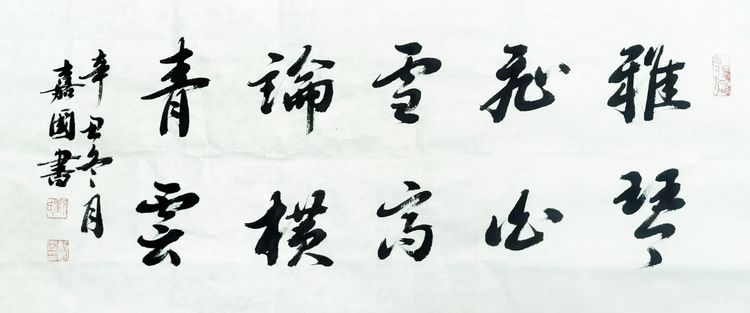 雅琴
飛白
雪高
論橫
青雲
辛丑冬月
嘉國書